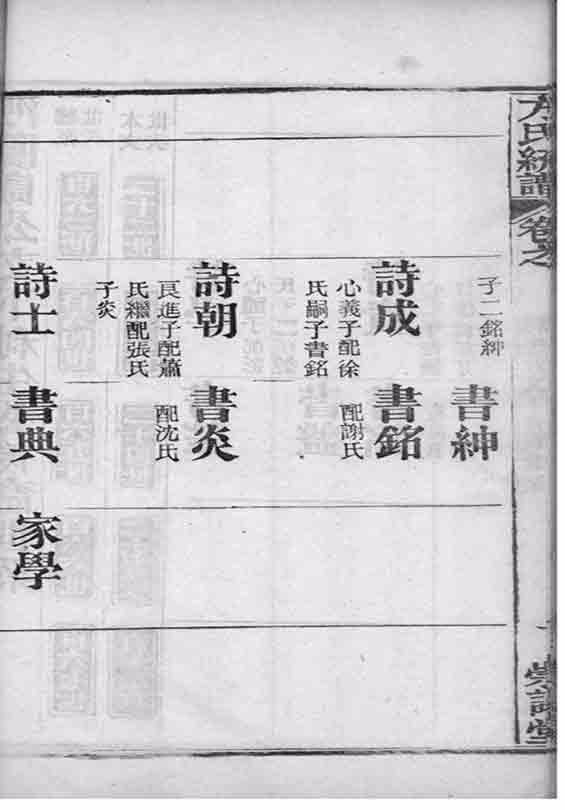 方氏統譜 卷之
崇語堂
子二銘紳
書紳
詩成
心義子配徐
氏嗣子書銘
書銘
配謝氏
詩朝
良進子配蕭
氏繼配張氏
子炎
書炎
配沈氏
詩士
書典
家學